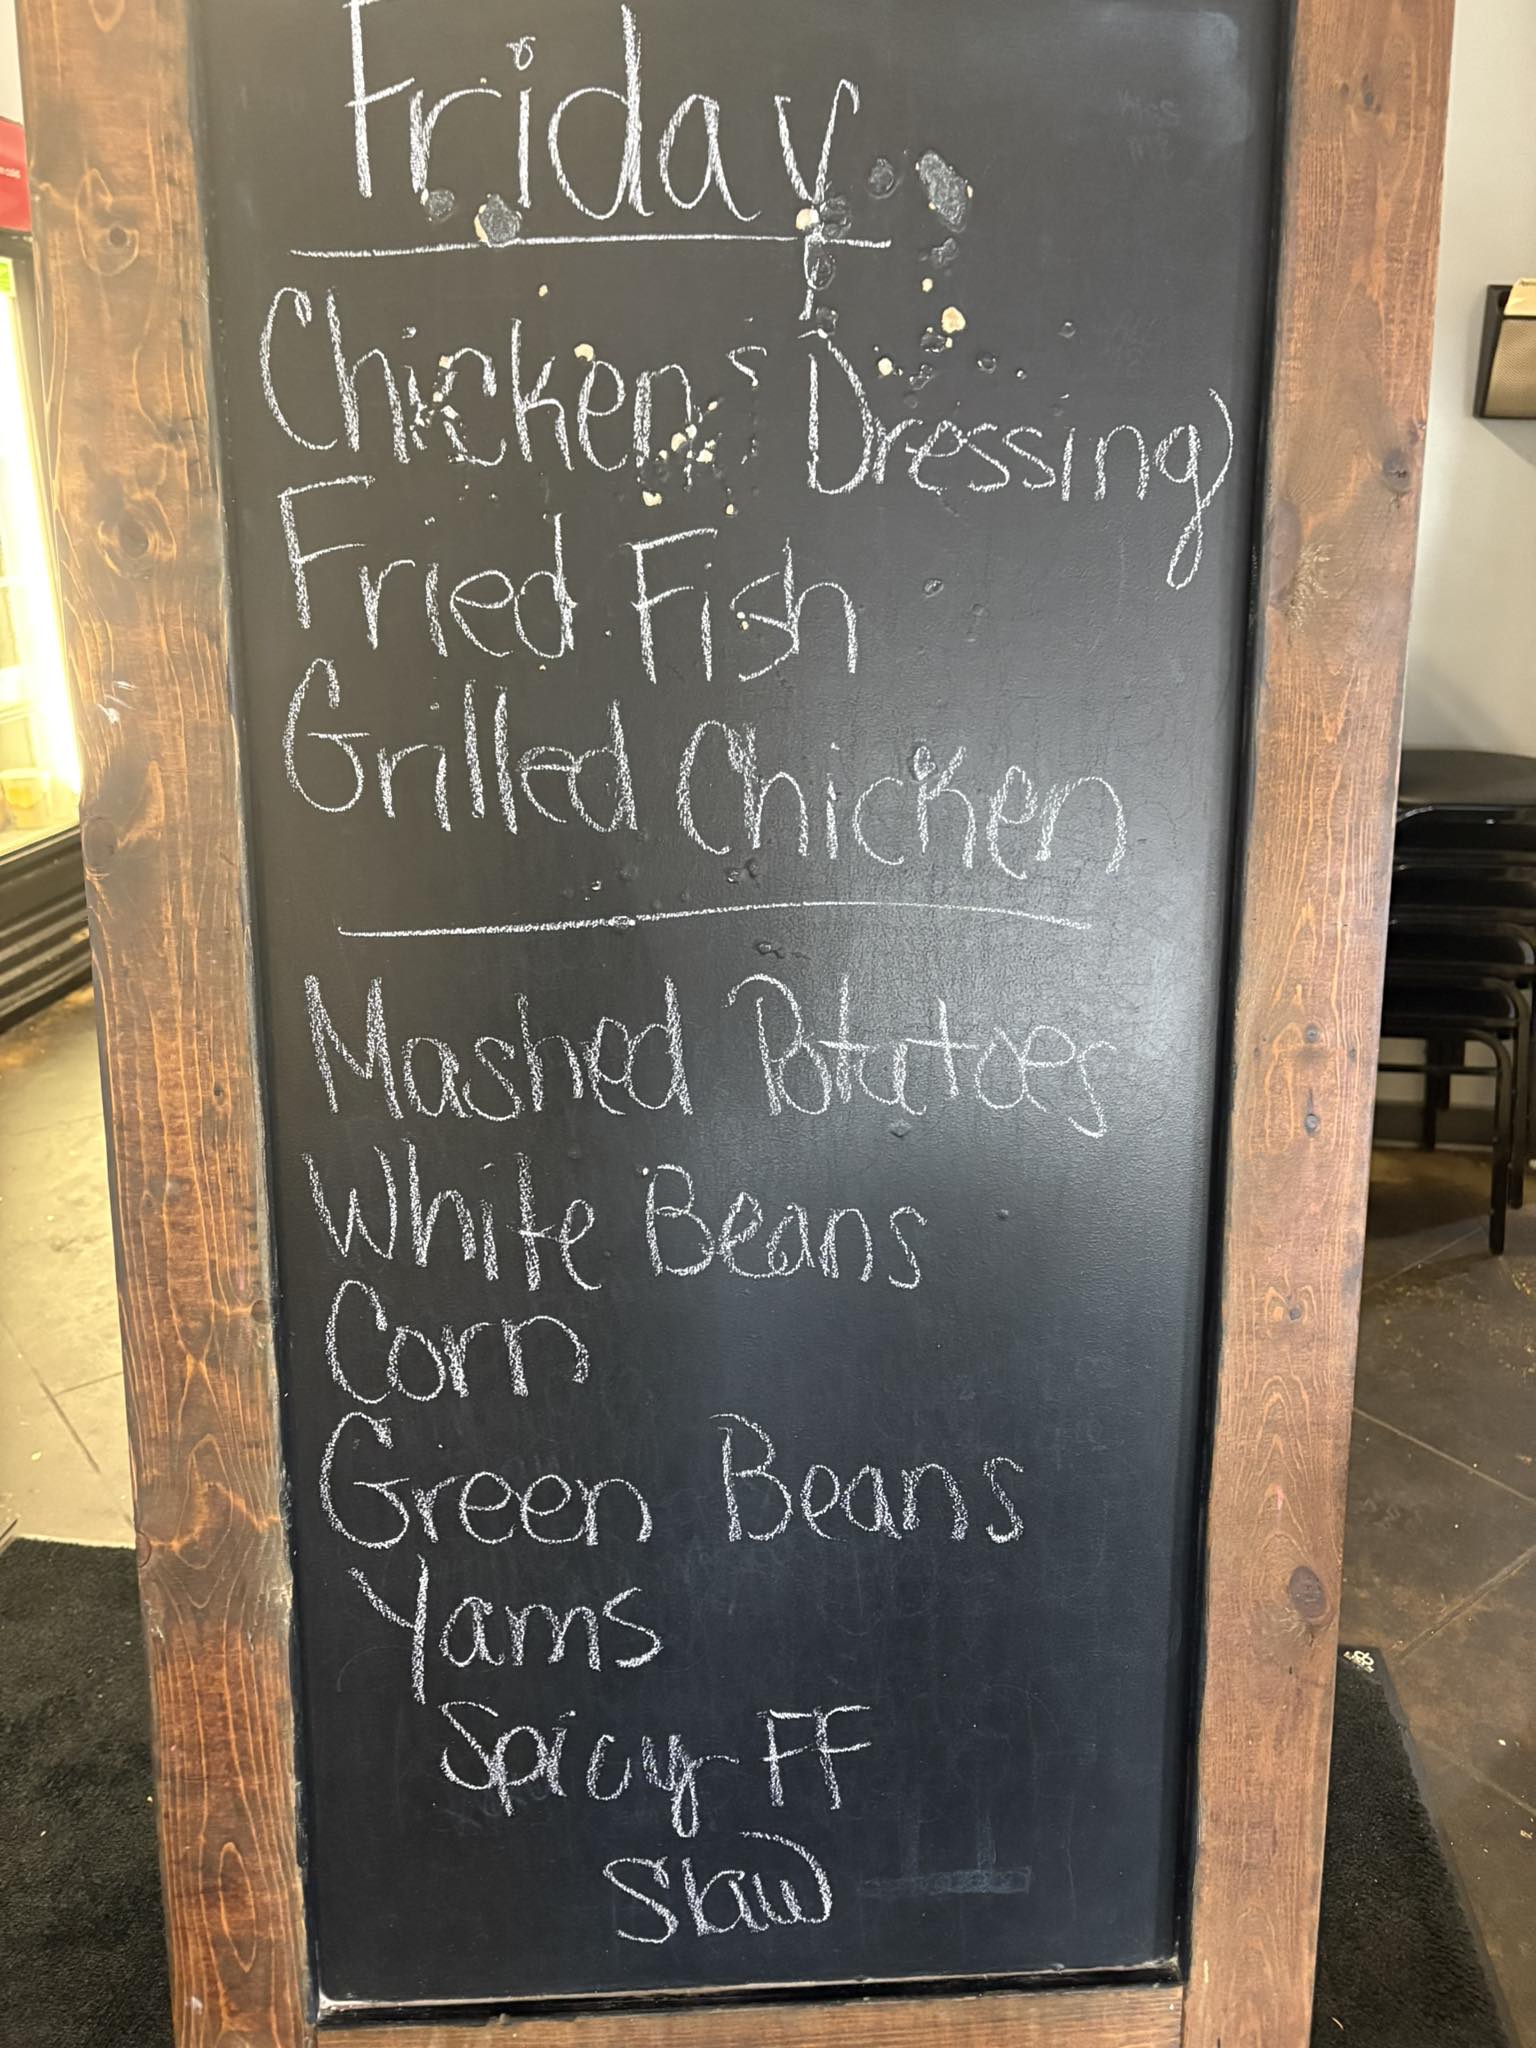 Friday
Chicken s Dressing
Fried Fish
Grilled Chicken
Mashed Potatoes
White Beans
Corn
Green Beans
Yams
Spicy FF
Slaw